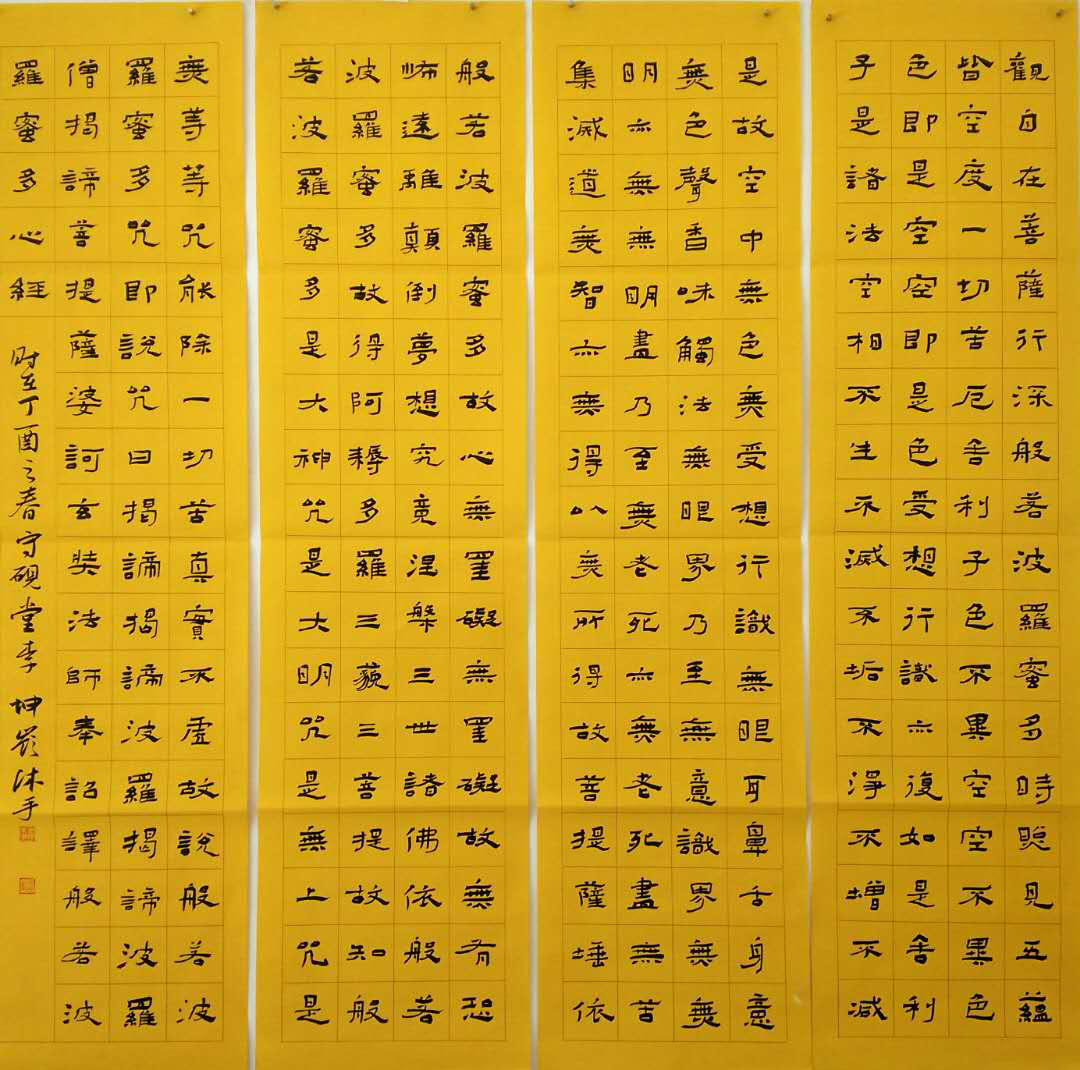 觀自在菩薩行深般若波羅蜜多時照見五蘊
皆空度一切苦厄舍利子色不異空空不異色
色即是空空即是色受想行識亦復如是舍利
子是諸法空相不生不滅不垢不淨不增不減
是故空中無色無受想行識無眼耳鼻舌身意
無色聲香味觸法無眼界乃至無意識界無無
明亦無無明盡乃至無老死亦無老死盡無苦
集滅道無智亦無得以無所得故菩提薩埵依
般若波羅蜜多故心無罣礙無罣礙故無有恐
怖遠離顛倒夢想究竟涅槃三世諸佛依般若
波羅蜜多故得阿耨多羅三藐三菩提故知般
若波羅蜜多是大神咒是大明咒是無上咒是
無等等咒能除一切苦真實不虛故說般若波
羅蜜多咒即說咒曰揭諦揭諦波羅揭諦波羅
僧揭諦菩提薩婆訶玄奘法師奉詔譯般若波
羅蜜多心經
时在丁酉之春守硯堂李坤嶺沐手